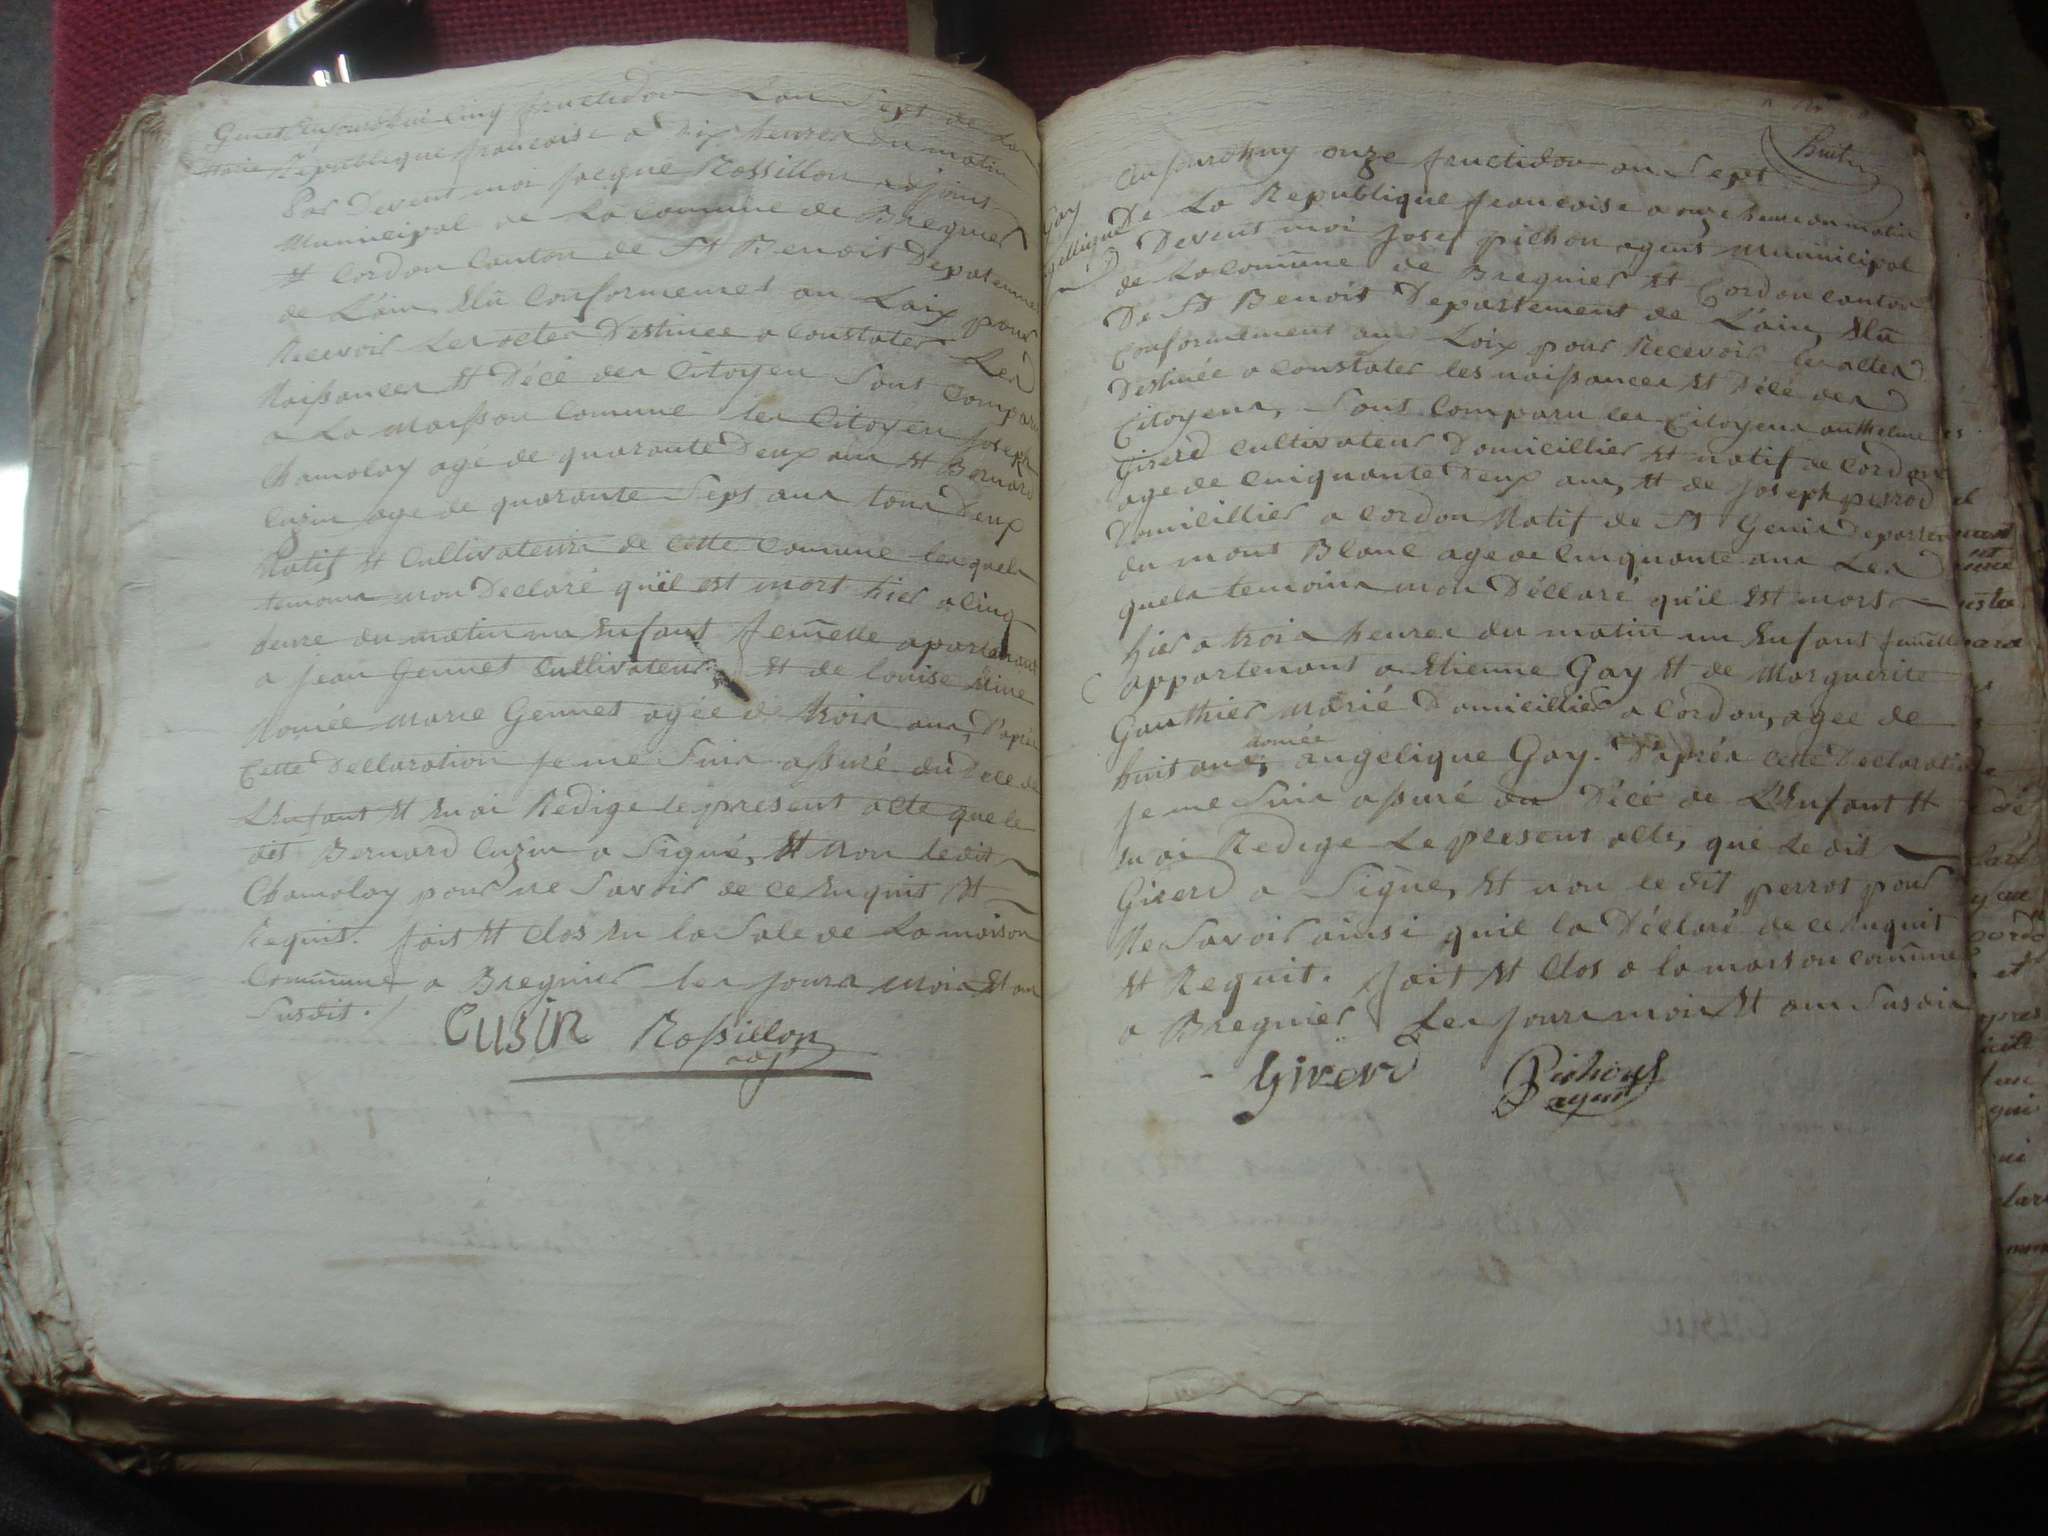 Genet Enjourdhui cinq fructidor Lan Sept de La
Marie Republique francoise a Dix heures du matin
Par Devent moi Jacque Rossillon adjoint
Municipal de La Comune de Bregnier
Et Cordon Canton de St Benoit Depatement
de L'ain, Elû Conformement au Loix pour
Recevoir Les actes Destinee a Constater Les
Naissances Et Décé des Citoyen Sont Comparu
a La Maisson Comune les Citoyen Joseph
Chamolay age de quarante Deux ans Et Bernard
Cuzin age de quarante Sept ans tous Deux
Natif Et Cultivateurs de cette Comune lesquels
temoins mon Declaré qu'il est mort hier a cinq
heure du matin un Enfant femelle apartenant
a Jean Gennet Cultivateur Et de Louise
Nomée Marie Gennet agée de trois ans, D'aprés
Cette Declaration Je me Suis assuré du Déce de
L'Enfant Et En ai Redige le present acte que le
dit Bernard Cuzin a Signé, Et Non le dit
Chamolay pour ne Savoir de ce Enquit Et
Requis. fait Et Clos En la Sale de La maison
Commune a Bregnier les Jours Mois Et an
Susdit.
Cusin Rossillon
adj
huit
Aujourdhuy onze fructidor an Sept
Gay
De La Republique francaise a onze heure du matin
angelique
Devent moi Josef pichon agent Municipal
de La Comune de Bregnier Et Cordon canton
De St Benoit Departement de L'ain, Elû
Conformement aux Loix pour Recevoir les actes
Destinée a Constater les naissances Et Décé des
Citoyens, Sont Comparu les Citoyens anthelme
Girerd Cultivateur Domicillier Et natif de Cordon
age de Cinquante Deux ans, Et de Joseph perrod
Domicillier a Cordon Natif de St Genis Departement
du mont Blanc age de Cinquante ans Les
quels temoins mon Déclaré qu'il Est mort
hier a trois heures du matin un Enfant femelle
appartenant a Etienne Gay Et de Marguerite
Gauthier marié Domicillier a Cordon, agee de
nomée
huit ans, angelique Gay. D'aprés cette Declaration
Je me Suis assuré du Décé de L'Enfant Et
En ai Redige Le present acte, que Le dit
Girerd a Signe, Et non le dit perrot pour
Ne Savoir ainsi quil la Déclaré de ce Enquit
Et Requit. Fait Et Clos a la maison comune
a Bregnier Les Jours mois Et an Susdit
Girerd Pichon
agent